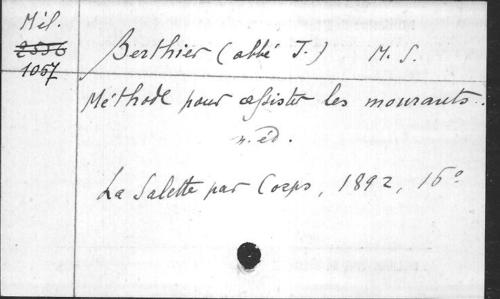 Mél.
2556
1067
Berthier (abbé J.) M. S.
Méthode pour assister les mourants.
n. éd.
La Salette par Corps, 1892, 16º